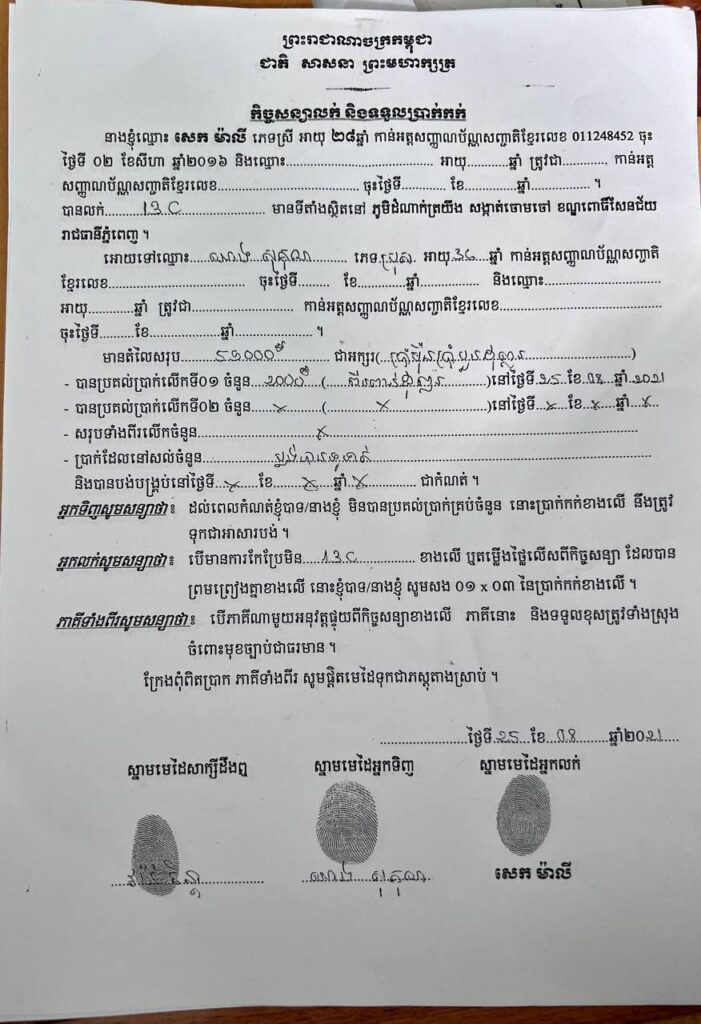 ព្រះរាជាណាចក្រកម្ពុជា
ជាតិ សាសនា ព្រះមហាក្សត្រ
កិច្ចសន្យាលក់ និងទទួលប្រាក់កក់
នាងខ្ញុំឈ្មោះ សេក ម៉ាលី ភេទស្រី អាយុ ២៨ឆ្នាំ កាន់អត្តសញ្ញាណប័ណ្ណសញ្ជាតិខ្មែរលេខ 011248452 ចុះ
ថ្ងៃទី ០២ ខែសីហា ឆ្នាំ២០១៦ និងឈ្មោះ........................................ អាយុ............ឆ្នាំ ត្រូវជា............ កាន់អត្ត
សញ្ញាណប័ណ្ណសញ្ជាតិខ្មែរលេខ........................................ចុះថ្ងៃទី............ ខែ..............ឆ្នាំ............... ។
បានលក់.........13C........................ មានទីតាំងស្ថិតនៅ ភូមិដំណាក់ត្រយឹង សង្កាត់ចោមចៅ ខណ្ឌពោធិ៍សែនជ័យ
រាជធានីភ្នំពេញ ។
អោយទៅឈ្មោះ............ សុគុណ......... ភេទ.ប្រុស. អាយុ.៣៤...ឆ្នាំ កាន់អត្តសញ្ញាណប័ណ្ណសញ្ជាតិ
ខ្មែរលេខ........................................ ចុះថ្ងៃទី......... ខែ..............ឆ្នាំ.................. និងឈ្មោះ..............................
អាយុ............ឆ្នាំ ត្រូវជា........................ កាន់អត្តសញ្ញាណប័ណ្ណសញ្ជាតិខ្មែរលេខ........................................
ចុះថ្ងៃទី.........ខែ..................ឆ្នាំ.................... ។
មានតំលៃសរុប.........៥៩០០០$............ ជាអក្សរ(...ប្រាំម៉ឺនប្រាំបួនពាន់ដុល្លារ........................)
- បានប្រគល់ប្រាក់លើកទី០១ ចំនួន...២០០០$...(......ពីរពាន់ដុល្លារ............)នៅថ្ងៃទី.២៥..ខែ.០៨...ឆ្នាំ.២០២១
- បានប្រគល់ប្រាក់លើកទី០២ ចំនួន......x..........(............x........................)នៅថ្ងៃទី..x...ខែ..x....ឆ្នាំ..x
- សរុបទាំងពីរលើកចំនួន..............................x............................................................
- ប្រាក់ដែលនៅសល់ចំនួន..................បង់រំលោះធនាគារ..................................................
និងបានបង់បង្គ្រប់នៅថ្ងៃទី...x....ខែ.......x....ឆ្នាំ..x............ ជាកំណត់ ។
អ្នកទិញសូមសន្យាថា៖ ដល់ពេលកំណត់ខ្ញុំបាទ/នាងខ្ញុំ មិនបានប្រគល់ប្រាក់គ្រប់ចំនួន នោះប្រាក់កក់ខាងលើ នឹងត្រូវ
ទុកជាអាសារបង់ ។
អ្នកលក់សូមសន្យាថា៖ បើមានការកែប្រែមិន......13C............ ខាងលើ ឬតម្លើងថ្លៃលើសពីកិច្ចសន្យា ដែលបាន
ព្រមព្រៀងគ្នាខាងលើ នោះខ្ញុំបាទ/នាងខ្ញុំ សូមសង ០១ x ០៣ នៃប្រាក់កក់ខាងលើ ។
ភាគីទាំងពីរសូមសន្យាថា៖ បើភាគីណាមួយអនុវត្តផ្ទុយពីកិច្ចសន្យាខាងលើ ភាគីនោះ និងទទួលខុសត្រូវទាំងស្រុង
ចំពោះមុខច្បាប់ជាធរមាន ។
ក្រែងពុំពិតប្រាក ភាគីទាំងពីរ សូមផ្តិតមេដៃទុកជាភស្តុតាងស្រាប់ ។
........................ថ្ងៃទី.២៥...ខែ...០៨.........ឆ្នាំ២០២១....
ស្នាមមេដៃសាក្សីដឹងឮ ស្នាមមេដៃអ្នកទិញ ស្នាមមេដៃអ្នកលក់
សុគុណ សេក ម៉ាលី